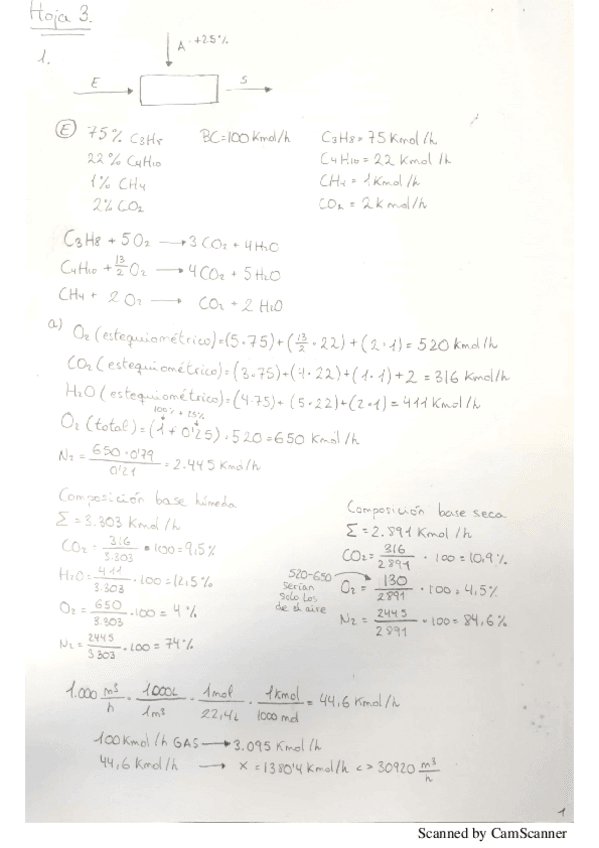 Hoja 3.
1.
A +25%
E
S
Ⓔ 75% C3H8 BC=100 Kmol/h C3H8=75 Kmol/h
22% C4H10 C4H10=22 Kmol/h
1% CH4 CH4=1Kmol/h
2% CO2 CO2=2Kmol/h
C3H8 + 5O2 → 3CO2 + 4H2O
C4H10 + 13/2 O2 → 4CO2 + 5H2O
CH4 + 2O2 → CO2 + 2H2O
a) O2 (estequiométrico)=(5·75)+(13/2·22)+(2·1)=520 Kmol/h
CO2 (estequiométrico)=(3·75)+(4·22)+(1·1)+2=316 Kmol/h
H2O (estequiométrico)=(4·75)+(5·22)+(2·1)=411 Kmol/h
100% + 25%
O2 (total)=(1+0'25)·520=650 Kmol/h
N2=650·0'79/0'21=2.445 Kmol/h
Composición base húmeda
Σ=3.303 Kmol/h
CO2=316/3.303·100=9,5%
H2O=411/3.303·100=12,5%
O2=650/3.303·100=4%
N2=2445/3303·100=74%
Composición base seca
Σ=2.891 Kmol/h
CO2=316/2891·100=10,9%
520-650 serían solo los de el aire
O2=130/2891·100=4,5%
N2=2445/2891·100=84,6%
1.000 m³/h · 1000L/1m³ · 1mol/22,4L · 1kmol/1000 mol = 44,6 Kmol/h
100 Kmol/h GAS → 3.095 Kmol/h
44,6 Kmol/h → X=1380'4 Kmol/h <> 30920 m³/h
1
Scanned by CamScanner